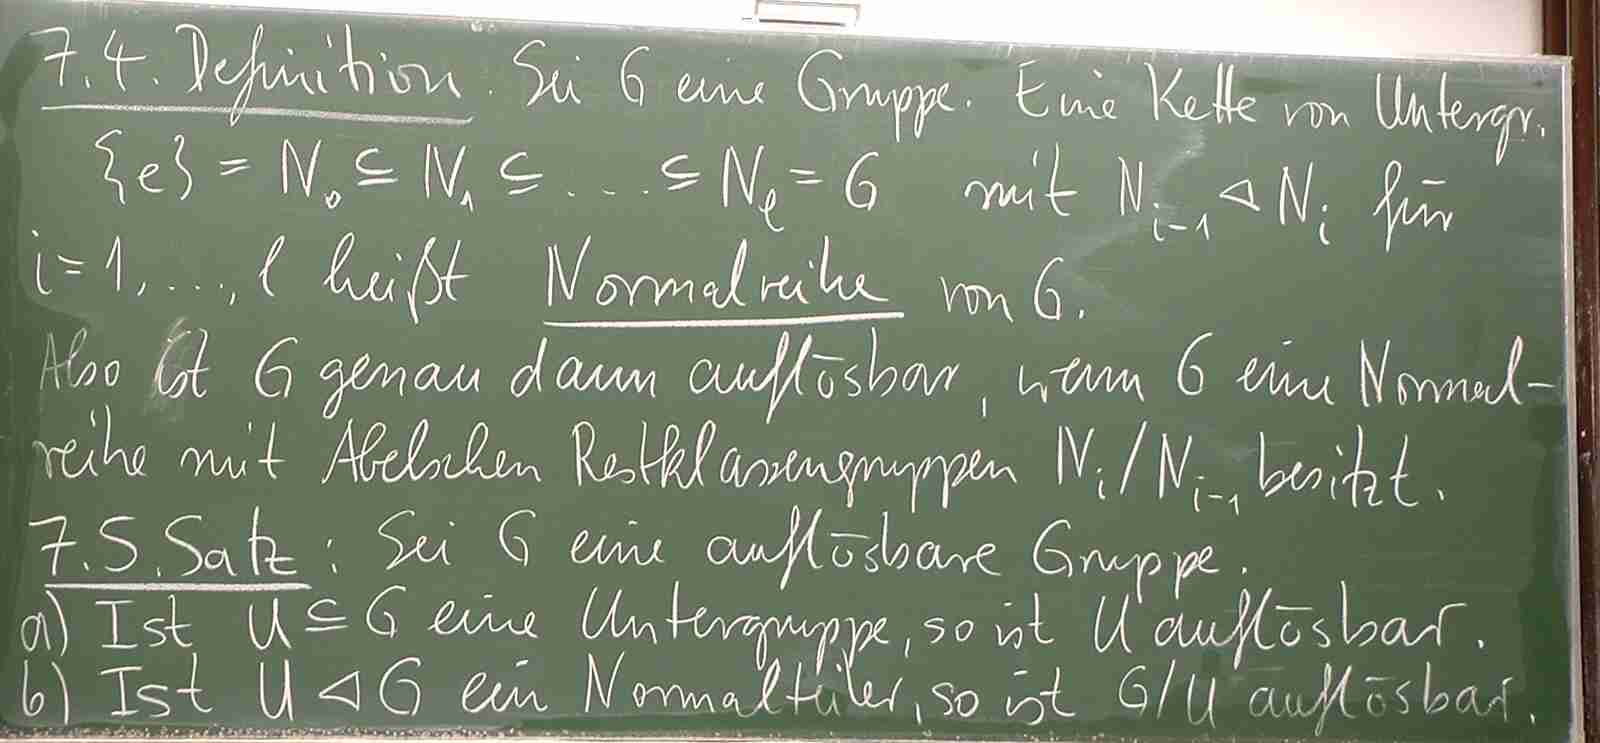 7.4. Definition. Sei G eine Gruppe. Eine Kette von Untergr.
{e} = N₀ ⊆ N₁ ⊆ ... ⊆ Nₗ = G mit Nᵢ₋₁ ◁ Nᵢ für
i=1,...,l heißt Normalreihe von G.
Also ist G genau dann auflösbar, wenn G eine Normal-
reihe mit Abelschen Restklassengruppen Nᵢ/Nᵢ₋₁ besitzt.
7.5. Satz: Sei G eine auflösbare Gruppe.
a) Ist U ⊆ G eine Untergruppe, so ist U auflösbar.
b) Ist U ◁ G ein Normalteiler, so ist G/U auflösbar.